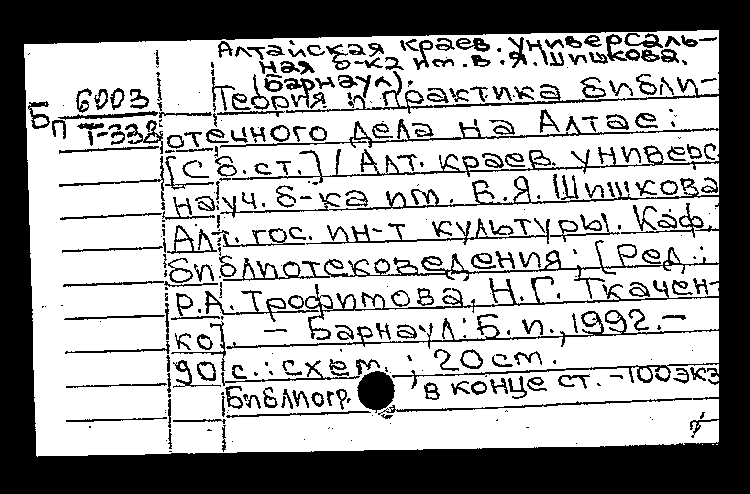 Алтайская краев. универсаль-
ная б-ка им. В.Я. Шишкова.
(Барнаул).
Бп 6003
Т-338
Теория и практика библи-
отечного дела на Алтае:
[Сб. ст.] / Алт. краев. универс
науч. б-ка им. В.Я. Шишкова
Алт. гос. ин-т культуры. Каф.
библиотековедения; [Ред.:
Р.А. Трофимова, Н.Г. Ткачен-
ко]. - Барнаул: Б.и., 1992. -
90 с.: схем.; 20 см.
Библиогр. в конце ст. - 100 экз